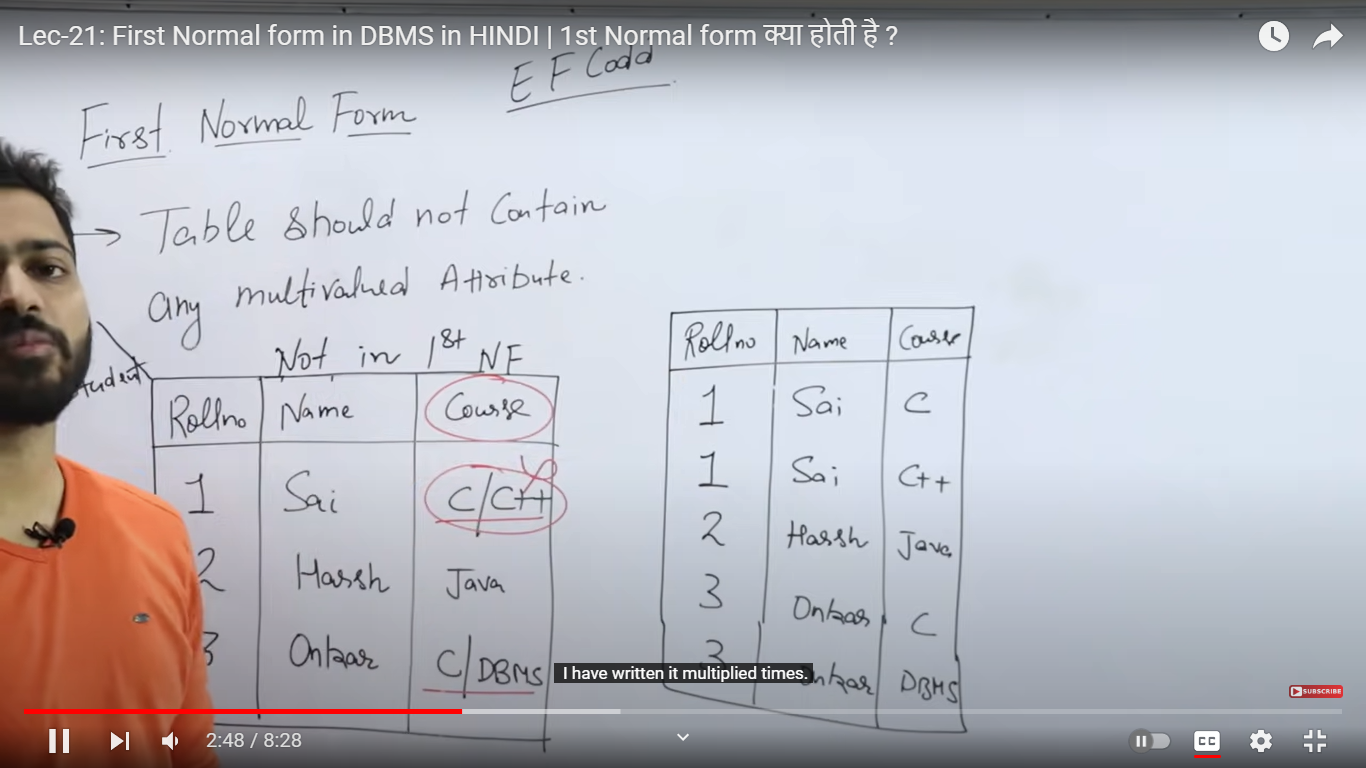 Lec-21: First Normal form in DBMS in HINDI | 1st Normal form क्या होती है ?
E F Codd
First Normal Form
→ Table should not Contain
any multivalued Attribute.
Not in 1st NF
Student
Rollno Name Course
1 Sai C/C++
2 Harsh Java
3 Onkar C/DBMS
Rollno Name Course
1 Sai C
1 Sai C++
2 Harsh Java
3 Onkar C
3 Onkar DBMS
I have written it multiplied times.
SUBSCRIBE
2:48 / 8:28
CC